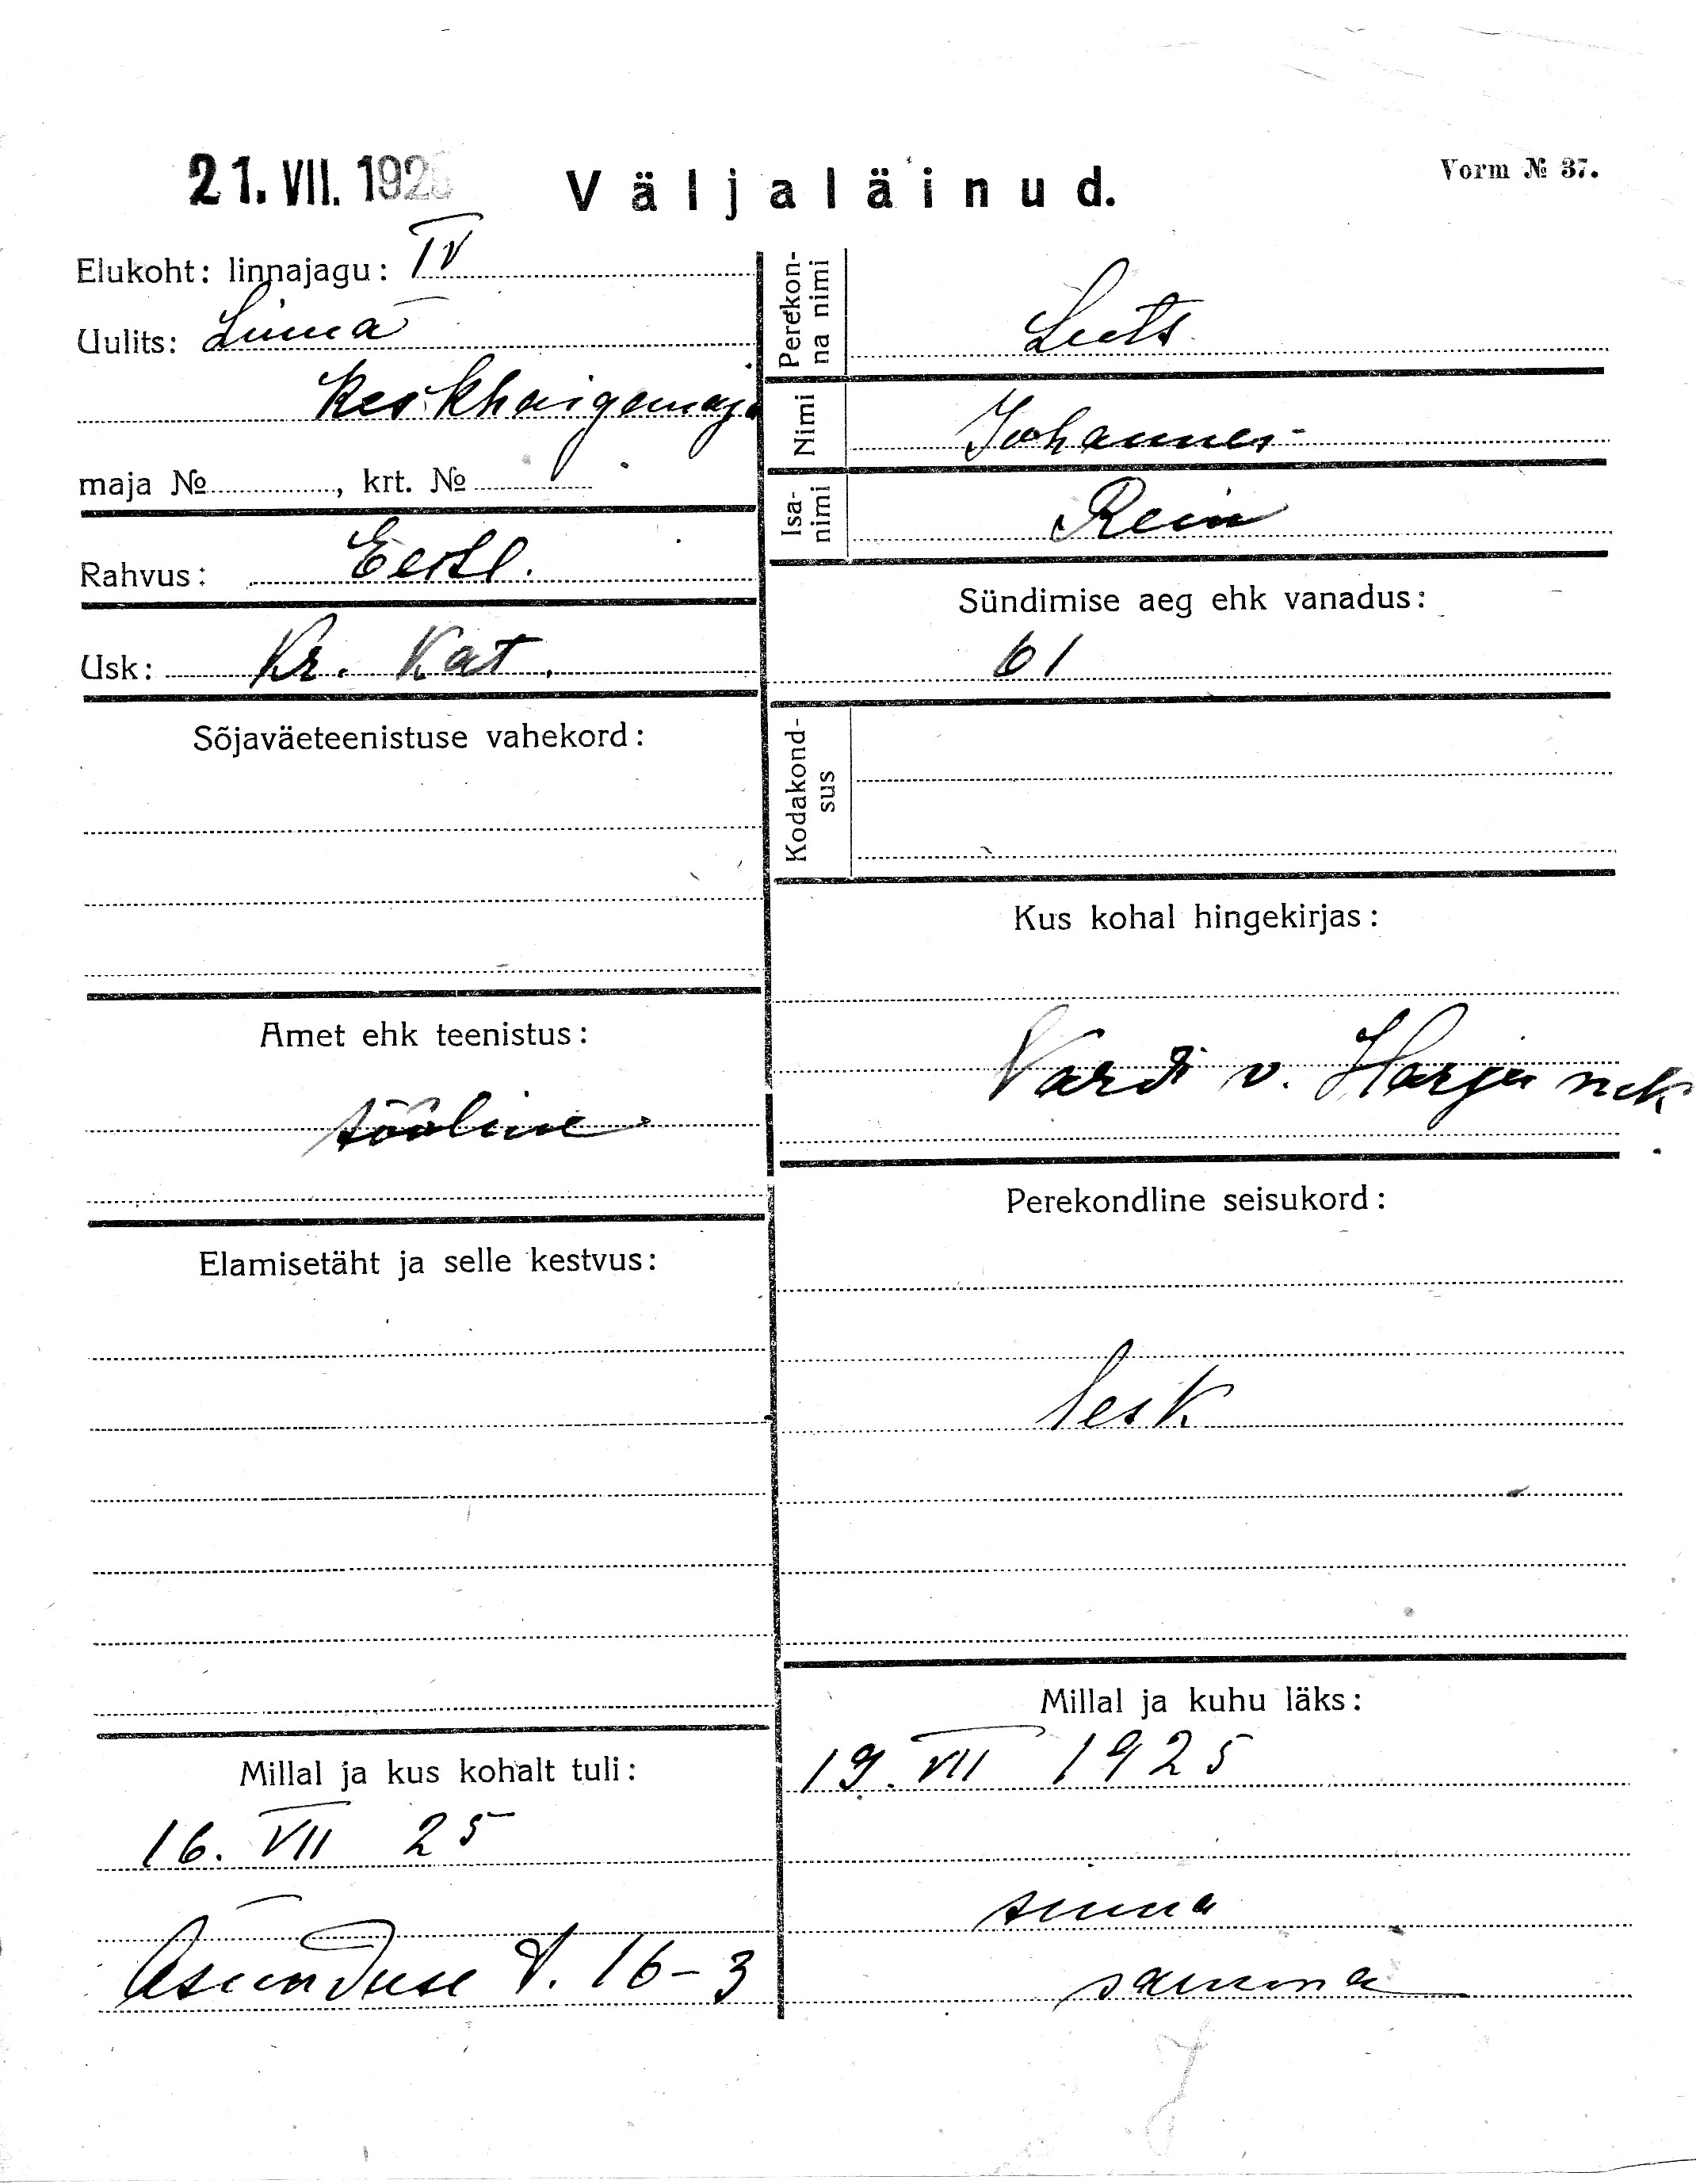 21. VII. 1925
Väljaläinud.
Vorm № 37.
Elukoht: linnajagu: IV
Uulits: Linna
Keskhaigemaja
maja № , krt. №
Rahvus: Eestl.
Usk: Kr. Kat.
Sõjaväeteenistuse vahekord:
Amet ehk teenistus:
tööline
Elamisetäht ja selle kestvus:
Millal ja kus kohalt tuli:
16. VII 25
Asunduse t. 16-3
Perekon-
na nimi
Leets
Nimi
Johannes
Isa-
nimi
Rein
Sündimise aeg ehk vanadus:
61
Kodakond-
sus
Kus kohal hingekirjas:
Vardi v. Harju mk
Perekondline seisukord:
lesk
Millal ja kuhu läks:
19. VII 1925
sinna
samma